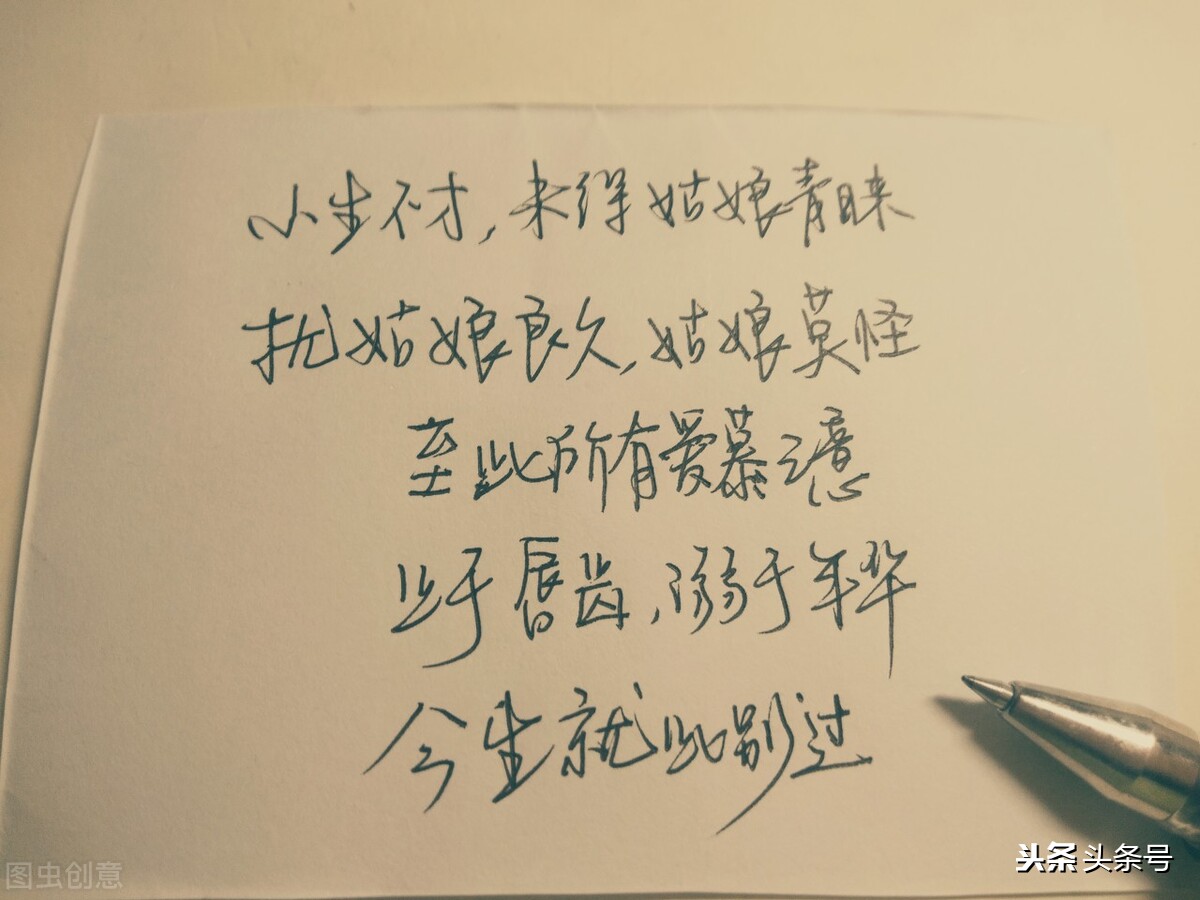 小生不才,未得姑娘青睐
扰姑娘良久,姑娘莫怪
至此所有爱慕之意
止于唇齿,溺于年华
今生就此别过
图虫创意
头条 头条号